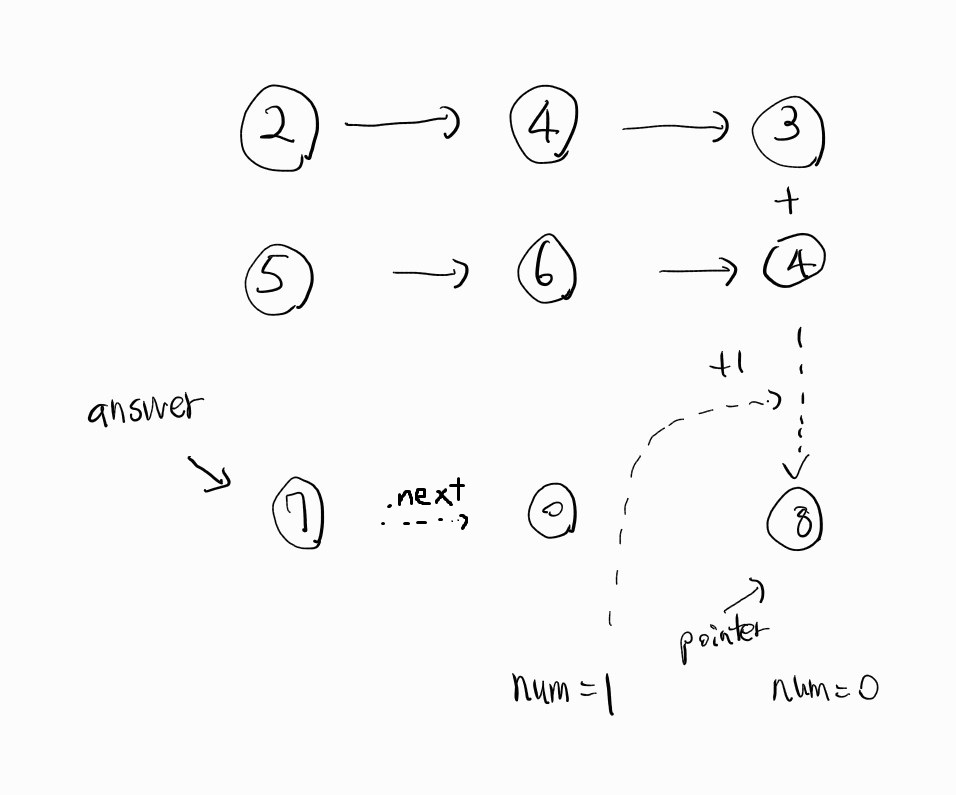 2 4 3
+
5 6 4
+1
answer
7 .next 0 8
pointer
num=1 num=0